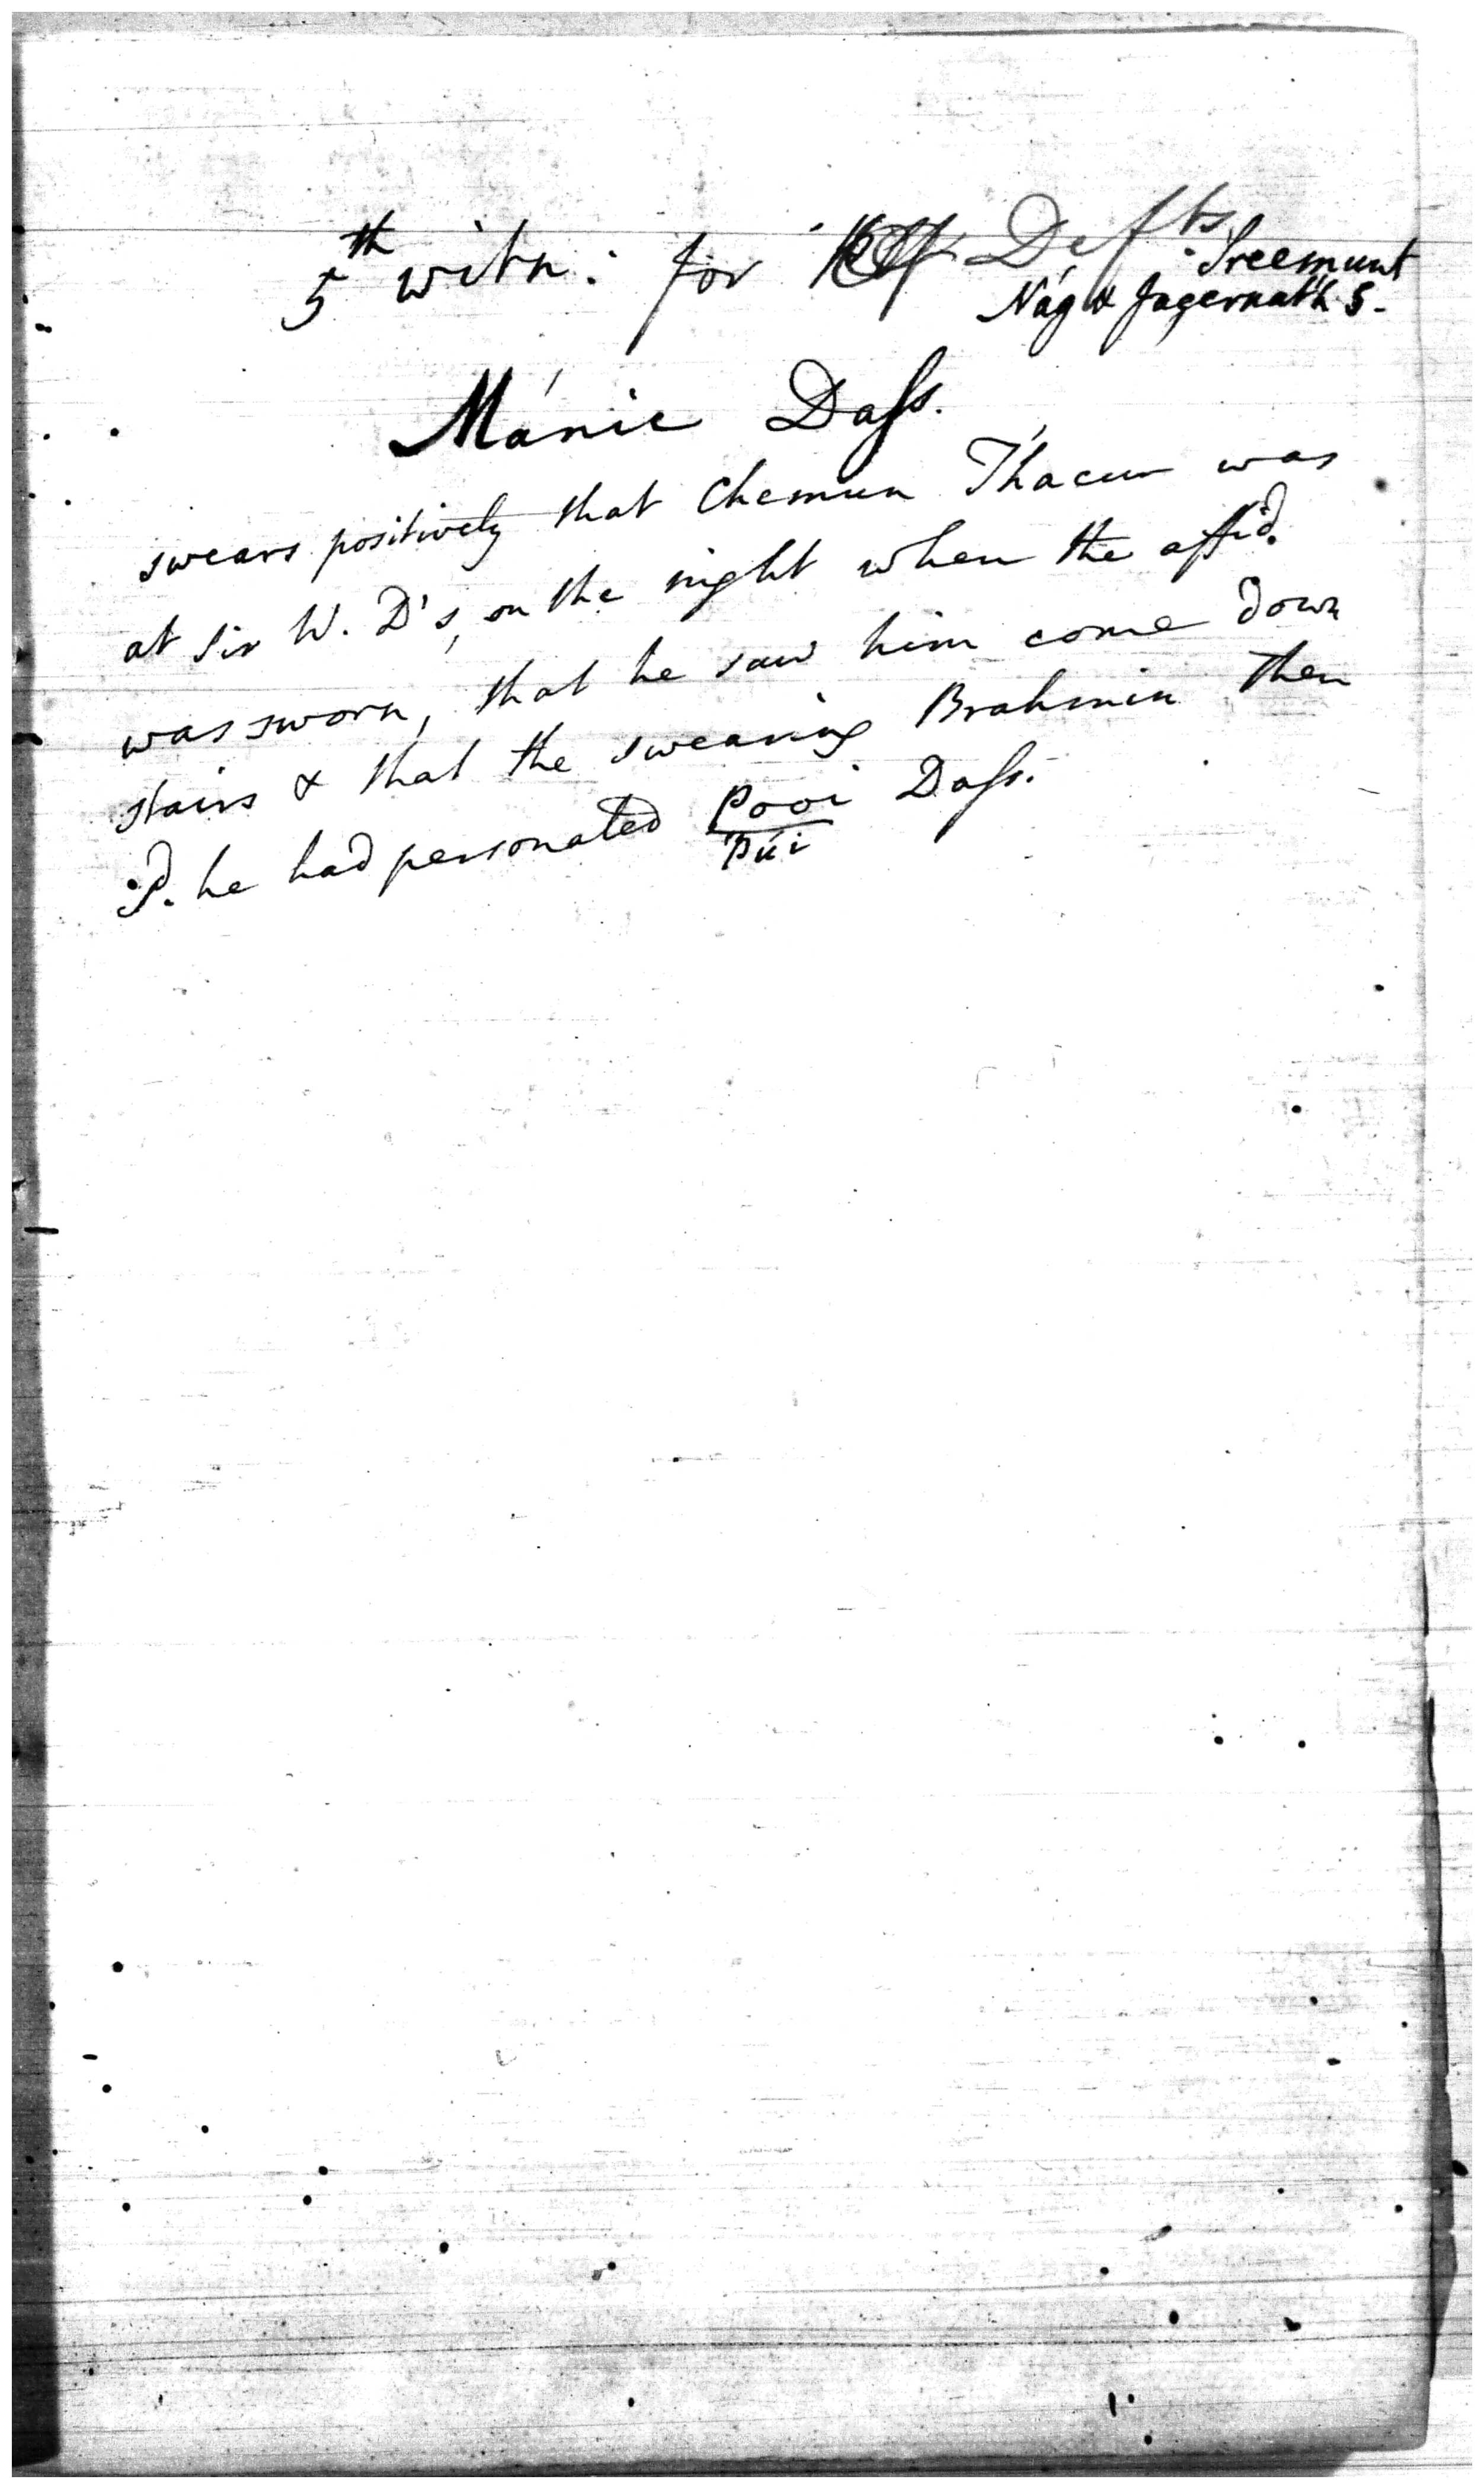 5th witn: for Defts. Sreemunt
Nág & Jagernáth S.
Mánic Dass.
swears positively that Chemun Thácur was
at Sir W. D's, on the night when the affid.
was sworn, that he saw him come down
stairs & that the swearing Brahmin then
sd. he had personated Pooi Dass.
Púi